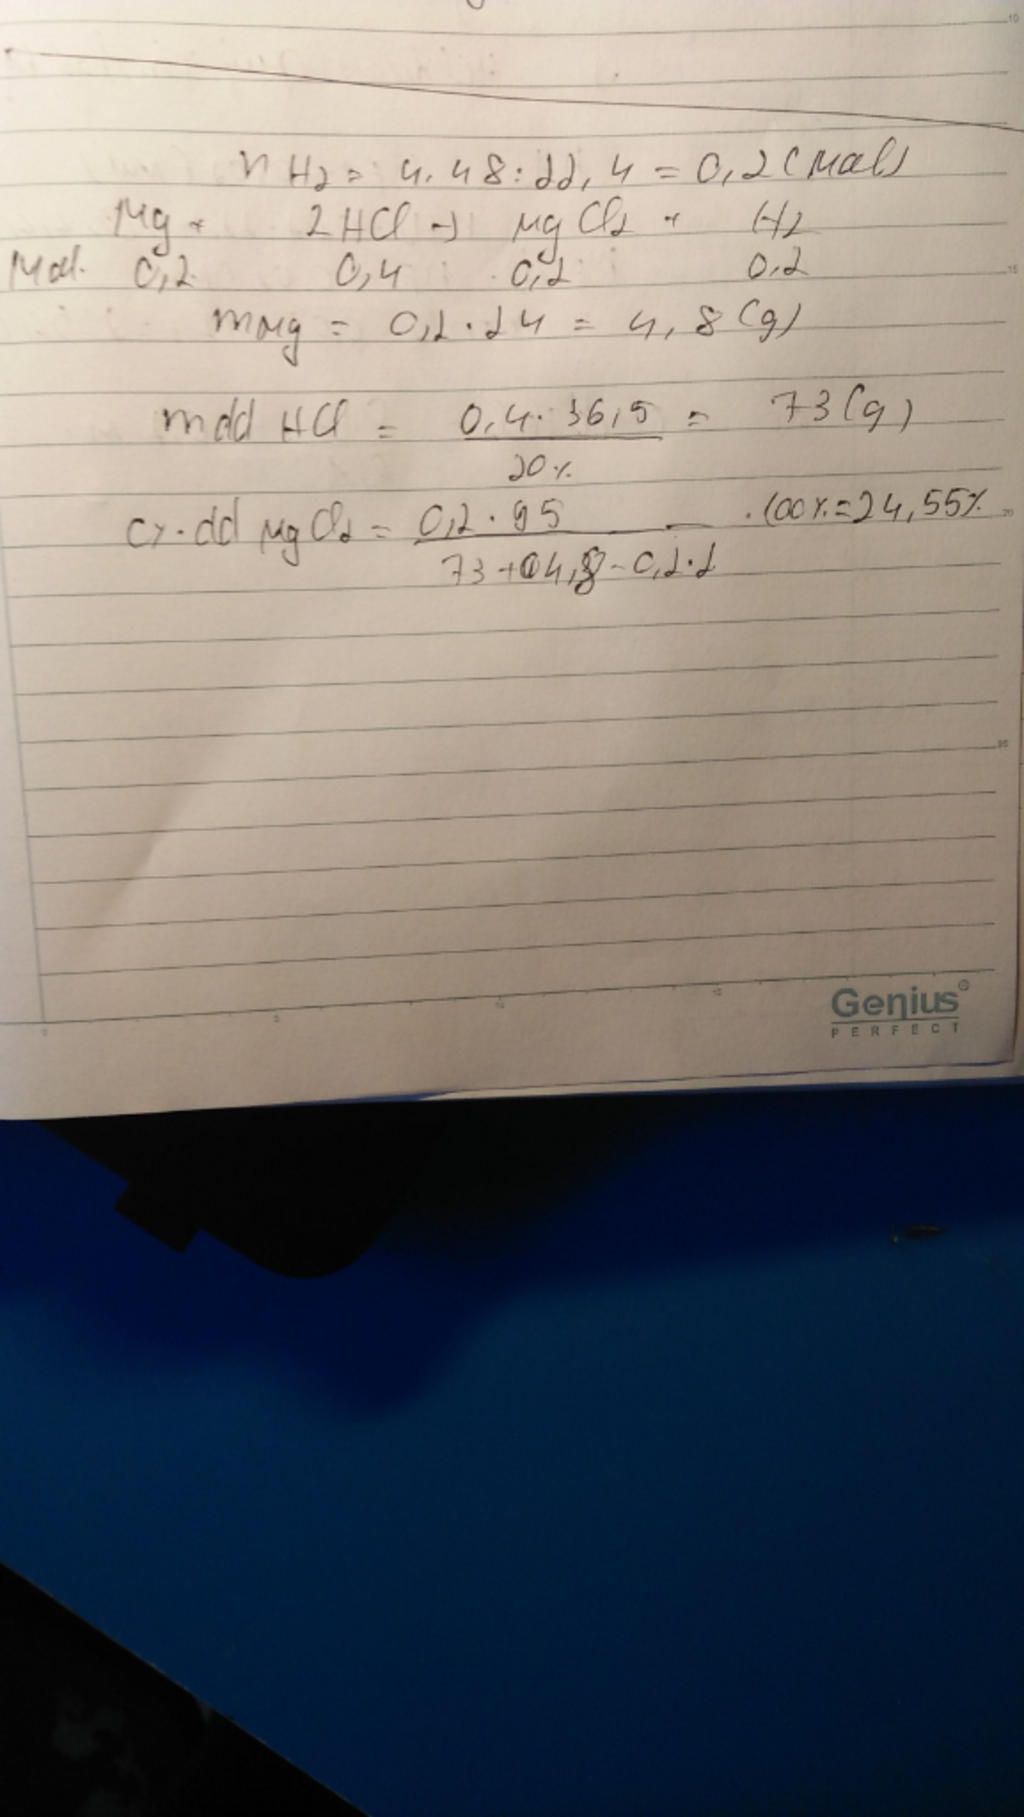 nH2 = 4.48 : 22,4 = 0,2 (mol)
Mg + 2HCl → MgCl2 + H2
Mol. 0,2 0,4 0,2 0,2
mMg = 0,2 . 24 = 4,8 (g)
mdd HCl = 0,4 . 36,5 / 20% = 73 (g)
C%dd MgCl2 = 0,2 . 95 / 73 + 4,8 - 0,2 . 2 . 100% = 24,55%
Genius®
PERFECT